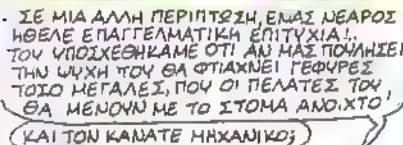 - ΣΕ ΜΙΑ ΑΛΛΗ ΠΕΡΙΠΤΩΣΗ, ΕΝΑΣ ΝΕΑΡΟΣ
ΗΘΕΛΕ ΕΠΑΓΓΕΛΜΑΤΙΚΗ ΕΠΙΤΥΧΙΑ!..
ΤΟΥ ΥΠΟΣΧΕΘΗΚΑΜΕ ΟΤΙ ΑΝ ΜΑΣ ΠΟΥΛΗΣΕΙ
ΤΗΝ ΨΥΧΗ ΤΟΥ ΘΑ ΦΤΙΑΧΝΕΙ ΓΕΦΥΡΕΣ
ΤΟΣΟ ΜΕΓΑΛΕΣ, ΠΟΥ ΟΙ ΠΕΛΑΤΕΣ ΤΟΥ
ΘΑ ΜΕΝΟΥΝ ΜΕ ΤΟ ΣΤΟΜΑ ΑΝΟΙΧΤΟ!
ΚΑΙ ΤΟΝ ΚΑΝΑΤΕ ΜΗΧΑΝΙΚΟ;